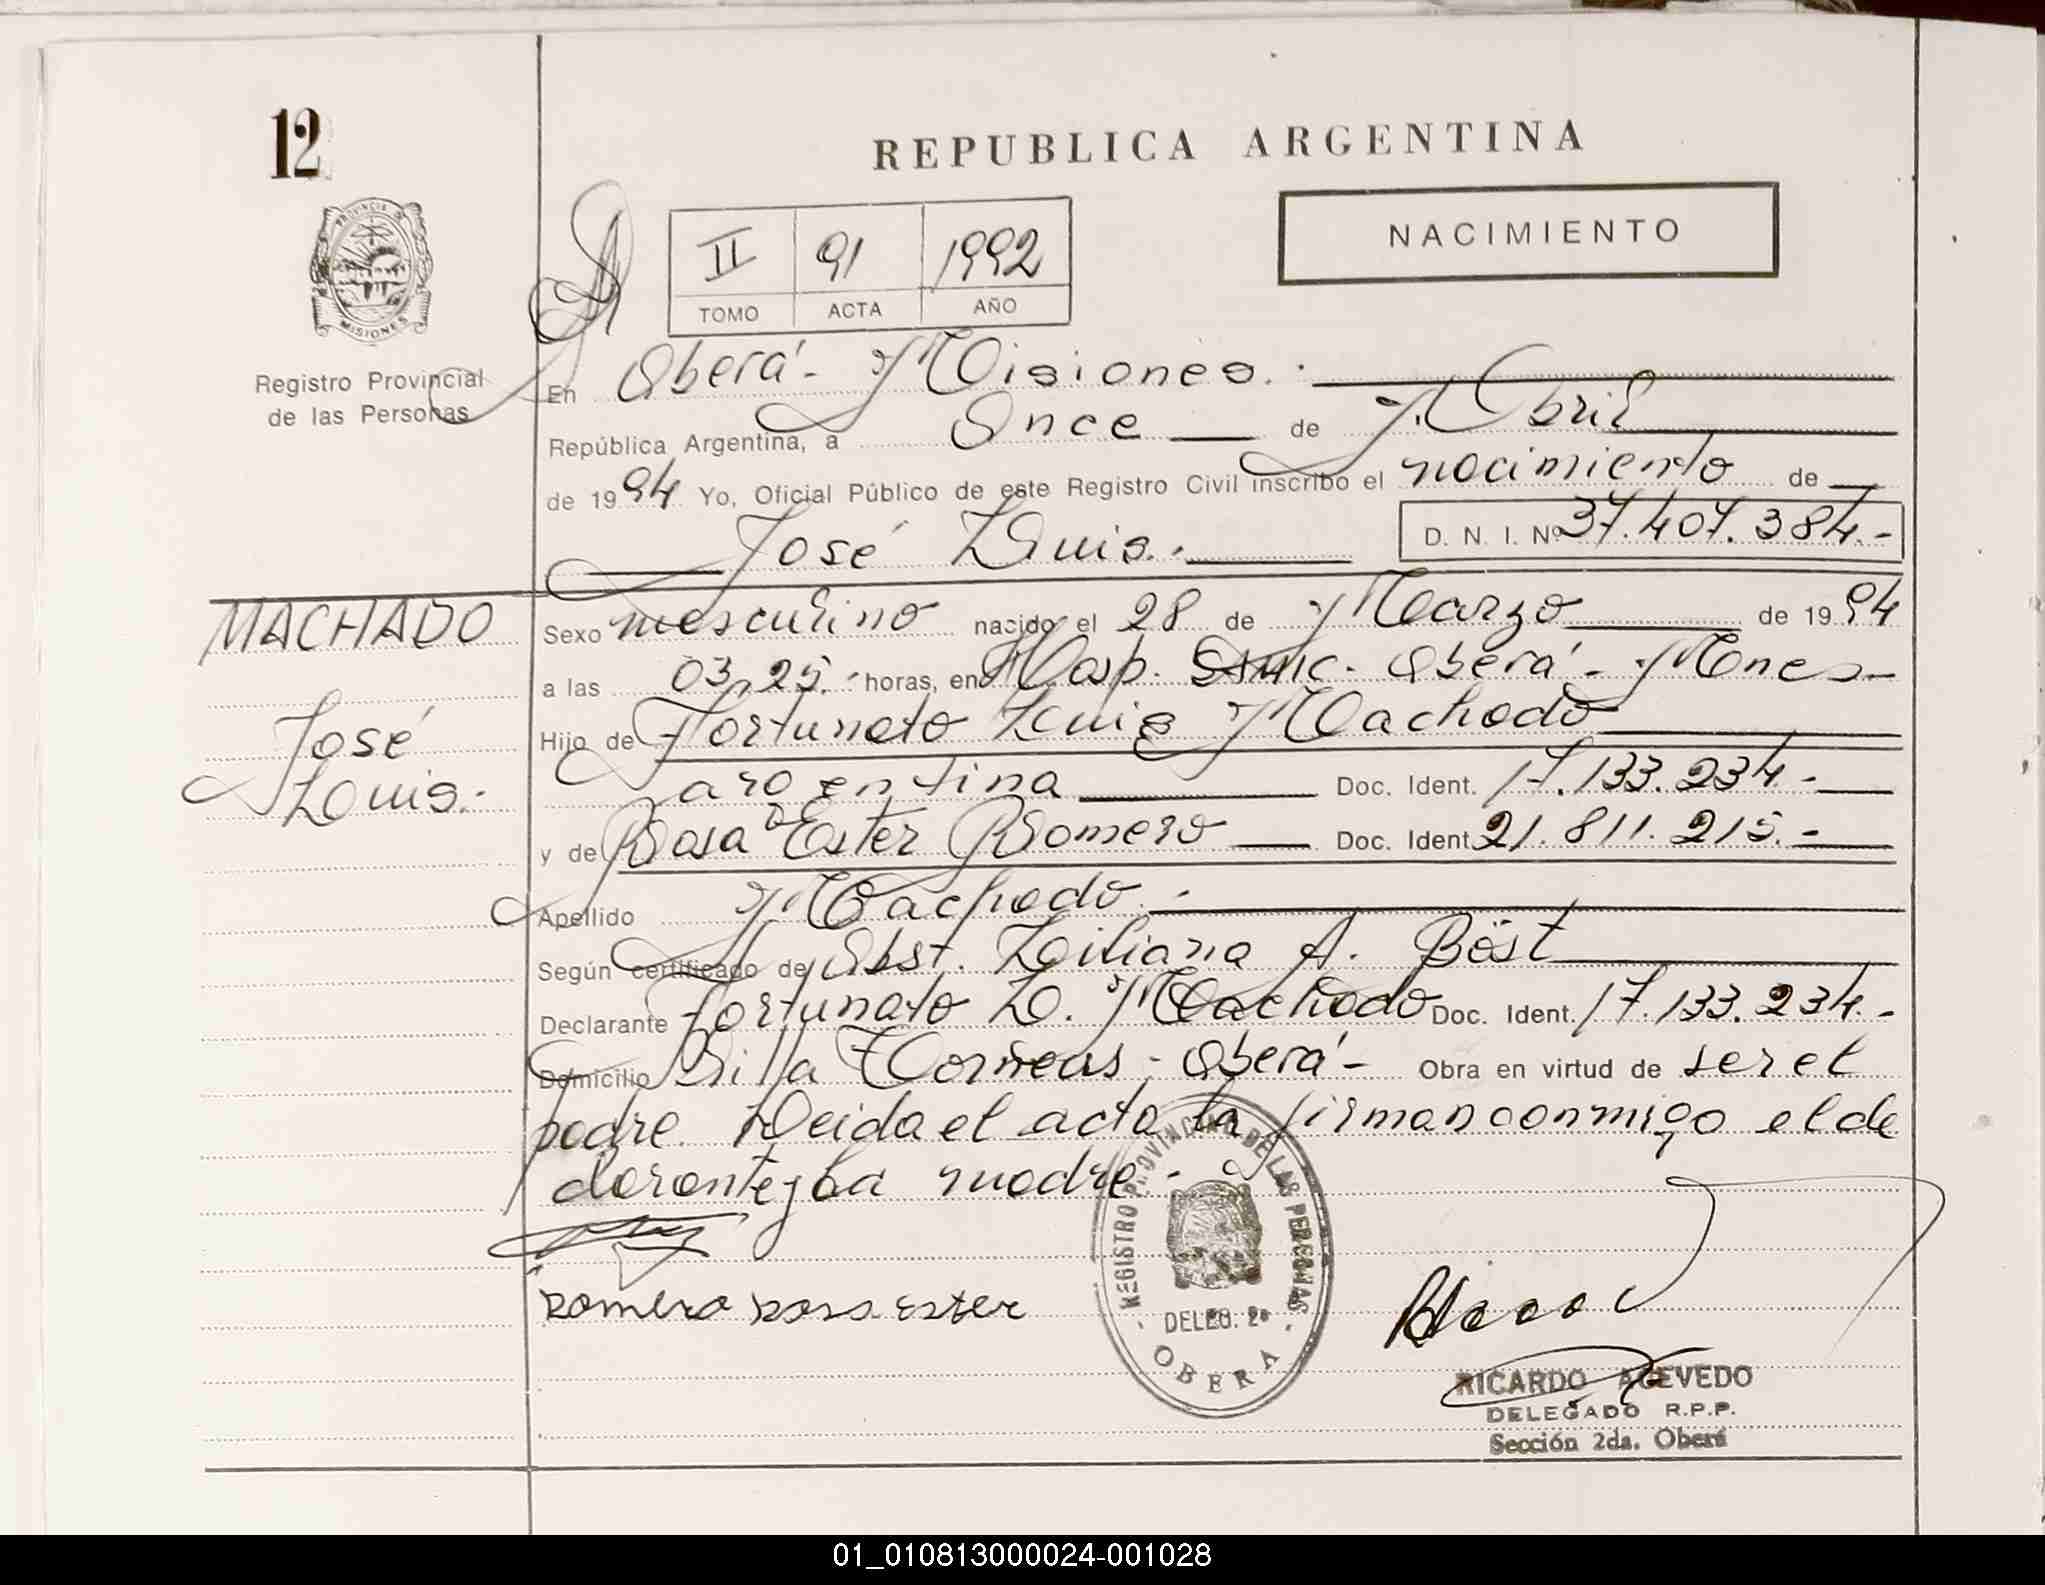 12
REPUBLICA ARGENTINA
PROVINCIA DE
MISIONES
II 91 1992
TOMO ACTA AÑO
NACIMIENTO
Registro Provincial
de las Personas
En Oberá - Misiones.
República Argentina, a Once de Abril
de 1994 Yo, Oficial Público de este Registro Civil inscribo el nacimiento de
José Luis.
D. N. I. Nº 37.407.384.-
MACHADO
José
Luis.-
Sexo masculino nacido el 28 de Marzo de 1994
a las 03,25.- horas, en Hosp. Oberá - Mnes-
Hijo de Fortunato Luis Machado
argentina Doc. Ident. 17.133.234.-
y de Rosa Ester Romero Doc. Ident. 21.811.215.-
Apellido Machado.-
Según certificado de Obst. Liliana A. Böst
Declarante Fortunato L. Machado Doc. Ident. 17.133.234.-
Domicilio Villa - Oberá - Obra en virtud de ser el
padre. Leida el acta la firman conmigo el de
clarante y la madre.-
romero rosa ester
REGISTRO PROVINCIAL DE LAS PERSONAS
DELEG. 2ª
OBERA
RICARDO ACEVEDO
DELEGADO R.P.P.
Sección 2da. Oberá
01_010813000024-001028